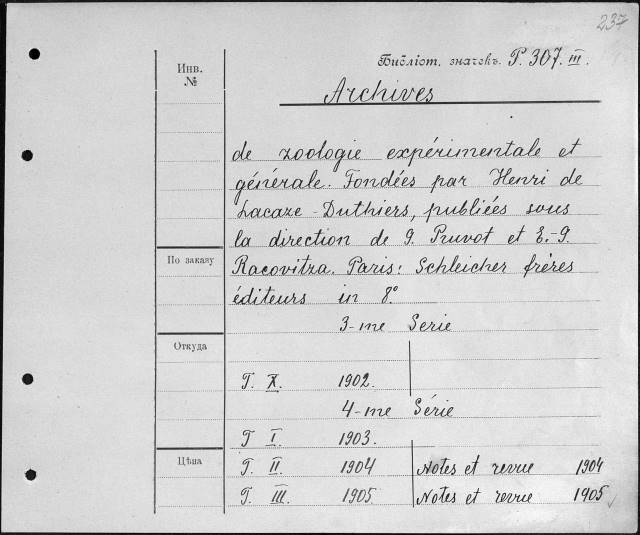 237
Библіот. значекъ. P. 307. III.
Инв.
№
Archives
de zoologie expérimentale et
générale. Fondées par Henri de
Lacaze-Duthiers, publiées sous
la direction de G. Pruvot et E.-G.
По заказу
Racovitza. Paris: Schleicher frères
éditeurs in 8°
3-me Serie
Откуда
T. X. 1902.
4-me Série
T I. 1903.
Цѣна
T. II. 1904 Notes et revue 1904
T. III. 1905 Notes et revue 1905